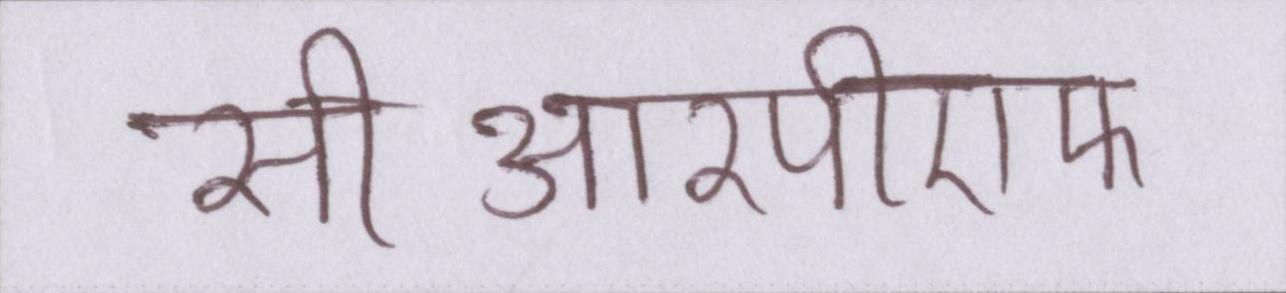 सीआरपीएफ